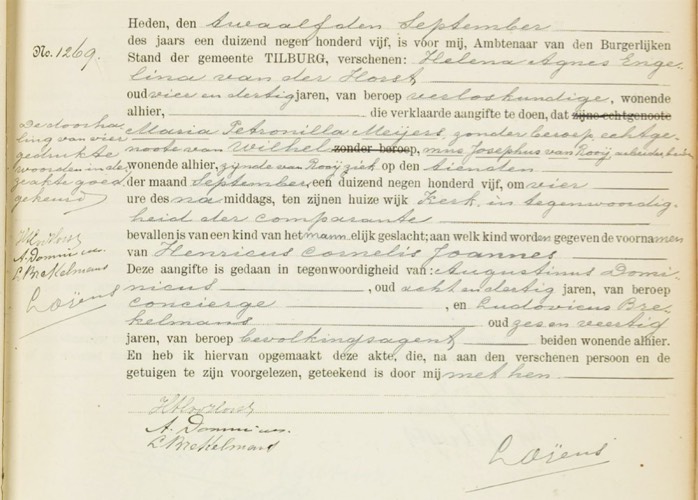 No. 1269.
Heden, den twaalfden September
des jaars een duizend negen honderd vijf, is voor mij, Ambtenaar van den Burgerlijken
Stand der gemeente TILBURG, verschenen: Helena Agnes Enge-
lina van der Horst
oud vier en dertig jaren, van beroep verloskundige, wonende
alhier, die verklaarde aangifte te doen, dat zijne echtgenoote
Maria Petronilla Meijers, zonder beroep, echtge-
noote van Wilhel zonder beroep, mus Josephus van Rooij, arbeider, beiden
wonende alhier, zijnde van Rooij ziek op den tienden
der maand September, een duizend negen honderd vijf, om vier
ure des na middags, ten zijnen huize wijk Kerk, in tegenwoordig-
heid der comparante
bevallen is van een kind van het mannelijk geslacht; aan welk kind worden gegeven de voornamen
van Henricus Cornelis Joannes
Deze aangifte is gedaan in tegenwoordigheid van: Augustinus Domi-
nicus, oud acht en dertig jaren, van beroep
concierge, en Ludovicus Bre-
kelmans oud zes en veertig
jaren, van beroep bevolkingsagent beiden wonende alhier.
En heb ik hiervan opgemaakt deze akte, die, na aan den verschenen persoon en de
getuigen te zijn voorgelezen, geteekend is door mij met hen.
De doorha-
ling van vier
gedrukte
woorden in de-
ze akte goed-
gekeurd
A. Dominicus.
L. Brekelmans
A. Dominicus.
L. Brekelmans